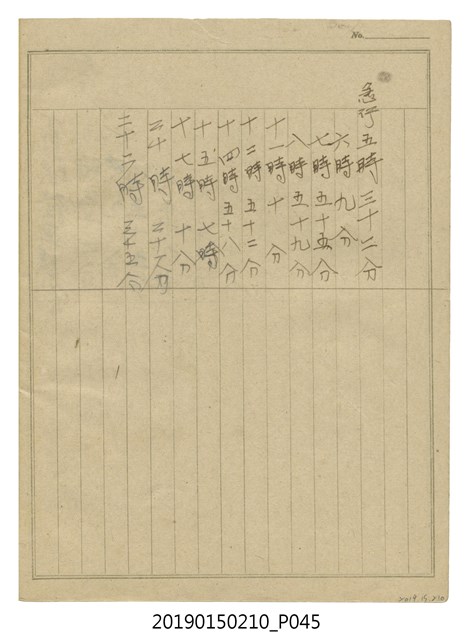 No.
急行五時三十二分
六時九分
七時五十五分
八時五十九分
十一時十分
十二時五十二分
十四時五十八分
十五時七時
十七時十分
二十時二十一分
二十二時三十五分
2019.15.210
20190150210_P045